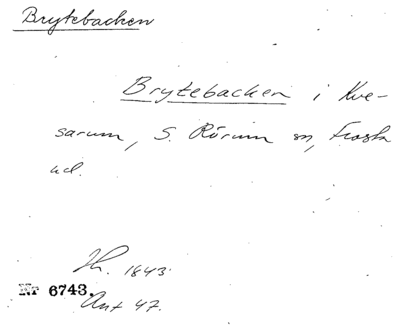 Brytebacken
Brytebacken i Kve-
sarum, S. Rörum sn, Frosta
hd.
Jh. 1843.
Nr 6743.
Ant 47.